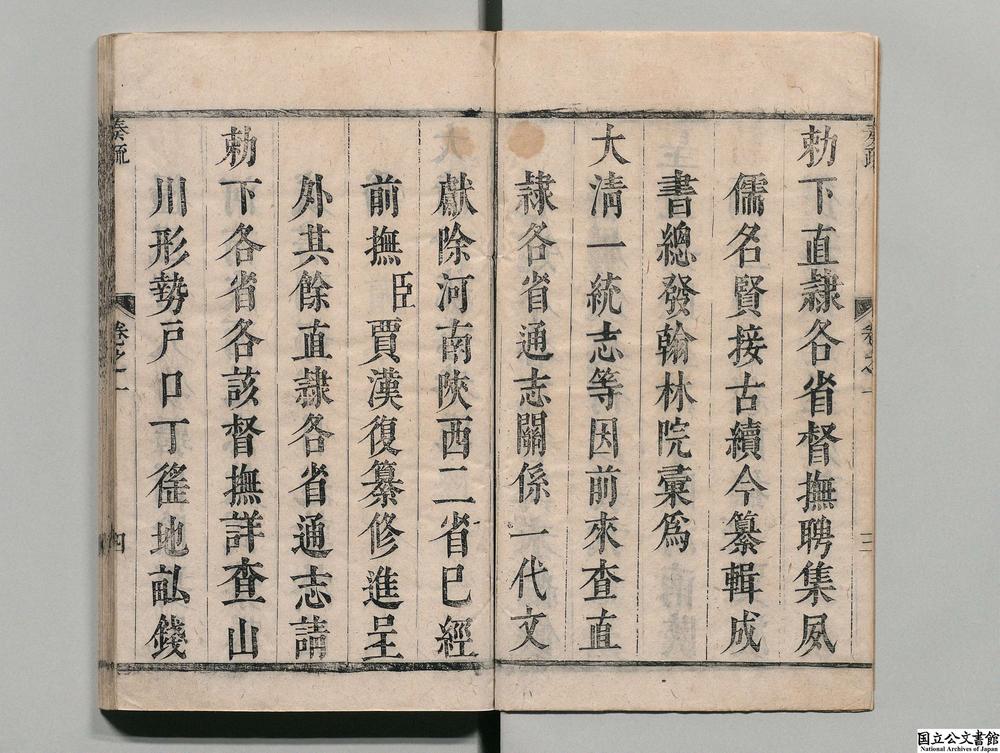 勅下直隷各省督撫聘集夙
儒名賢接古續今纂輯成
書總發翰林院彙爲
大清一統志等因前來查直
隷各省通志關係一代文
獻除河南陜西二省已經
前撫臣賈漢復纂修進呈
外其餘直隷各省通志請
勅下各省各該督撫詳查山
川形勢戸口丁徭地畆錢
奏疏
卷之一
三
奏疏
卷之一
四
国立公文書館
National Archives of Japan